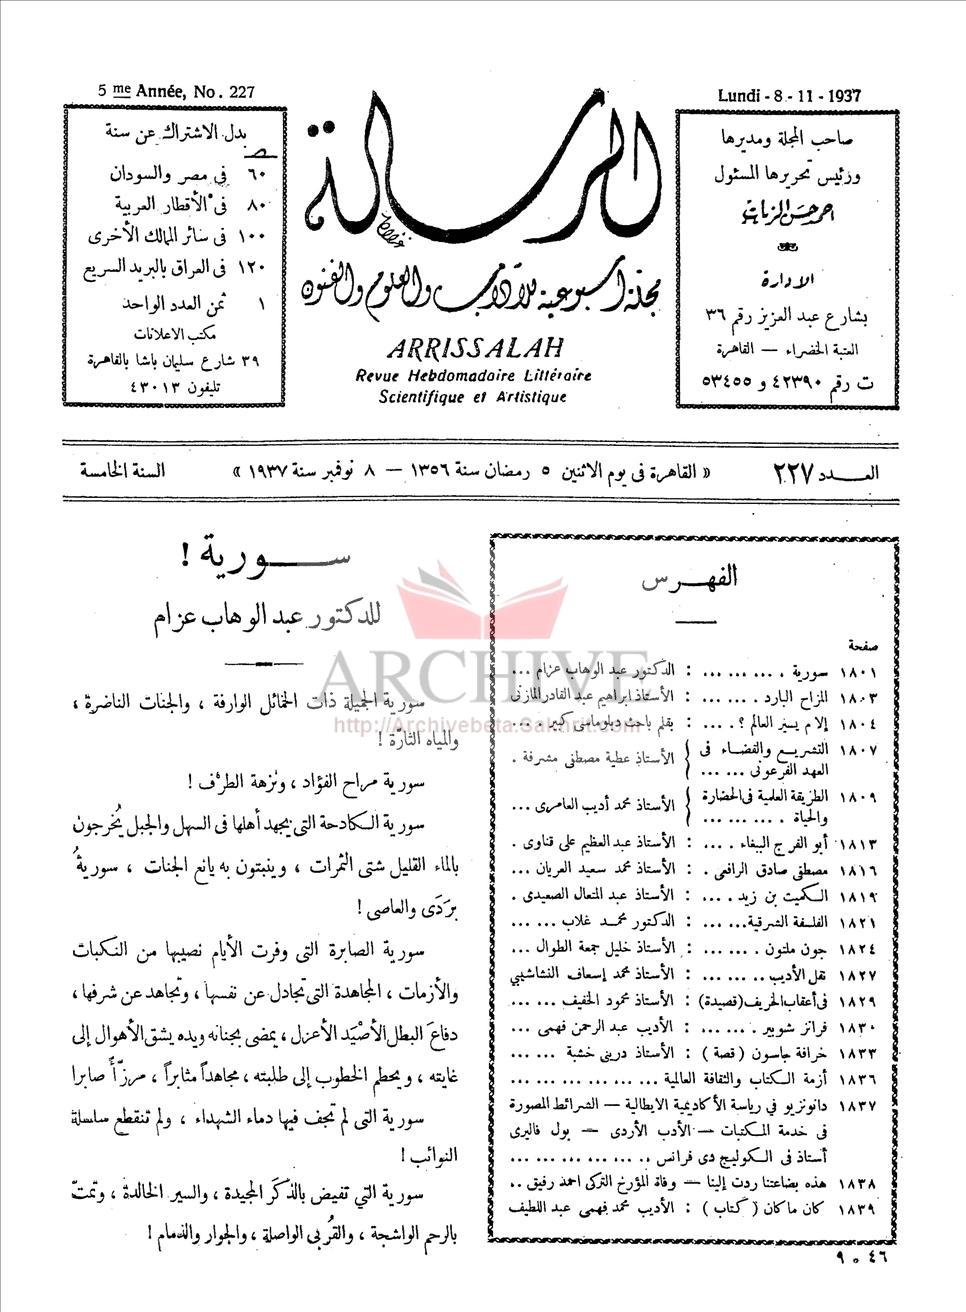 5 me Année, No. 227
Lundi - 8 - 11 - 1937
صاحب المجلة ومديرها
ورئيس تحريرها المسئول
احمد حسن الزيات
الادارة
بشارع عبد العزيز رقم ٣٦
العتبة الخضراء — القاهرة
ت رقم ٤٢٣٩٠ و ٥٣٤٥٥
الرسالة
مجلة أسبوعية للآداب والعلوم والفنون
ARRISSALAH
Revue Hebdomadaire Littéraire
Scientifique et Artistique
بدل الاشتراك عن سنة
٦٠ فى مصر والسودان
٨٠ فى الأقطار العربية
١٠٠ فى سائر الممالك الأخرى
١٢٠ فى العراق بالبريد السريع
١ ثمن العدد الواحد
مكتب الاعلانات
٣٩ شارع سليمان باشا بالقاهرة
تليفون ٤٣٠١٣
العـــدد ٢٢٧ « القاهرة فى يوم الاثنين ٥ رمضان سنة ١٣٥٦ — ٨ نوفمبر سنة ١٩٣٧ » السنة الخامسة
الفهرس
صفحة
١٨٠١ سورية . ... ... ... : الدكتور عبد الوهاب عزام ...
١٨٠٣ المزاح البارد . ... ... : الأستاذ ابراهيم عبد القادر المازنى
١٨٠٤ إلام يسير العالم ؟ . ... : بقلم باحث دبلوماسى كبير . ...
١٨٠٧ التشريع والقضاء فى العهد الفرعونى ... ... } الأستاذ عطية مصطفى مشرفة .
١٨٠٩ الطريقة العلمية فى الحضارة والحياة . ... ... ... } الأستاذ محمد أديب العامرى ...
١٨١٣ أبو الفرج الببغاء . ... : الأستاذ عبد العظيم على قناوى .
١٨١٦ مصطفى صادق الرافعى . : الأستاذ محمد سعيد العريان ...
١٨١٩ الكميت بن زيد . ... : الأستاذ عبد المتعال الصعيدى .
١٨٢١ الفلسفة الشرقية... ... : الدكتور محمد غلاب ... ...
١٨٢٤ جون ملتون . ... ... : الأستاذ خليل جمعة الطوال ...
١٨٢٧ نقل الأديب... ... ... : الأستاذ محمد إسعاف النشاشيبي
١٨٢٩ فى أعقاب الخريف (قصيدة) : الأستاذ محمود الخفيف ... ...
١٨٣٠ فرانز شوبير . ... ... : الأديب عبد الرحمن فهمى ...
١٨٣٣ خرافة جاسون ( قصة ) : الأستاذ درينى خشبة ... ...
١٨٣٦ أزمة الكتاب والثقافة العالمية ... ... ... ... ... ...
١٨٣٧ دانونزيو في رياسة الأكاديمية الايطالية — الشرائط المصورة
فى خدمة المكتبات — الأدب الأردى — بول فاليرى
أستاذ فى الكوليج دى فرانس .. ... ... ... ... ...
١٨٣٨ هذه بضاعتنا ردت إلينا — وفاة المؤرخ التركى احمد رفيق ..
١٨٣٩ كان ما كان ( كتاب ) : الأديب محمد فهمى عبد اللطيف
٤٦ ٥ ٩
ســـورية !
للدكتور عبد الوهاب عزام
سورية الجميلة ذات الخمائل الوارفة ، والجنات الناضرة ،
والمياه الثارّة !
سورية مراح الفؤاد ، ونزهة الطرْف !
سورية الكادحة التى يجهد أهلها فى السهل والجبل يُخرجون
بالماء القليل شتى الثمرات ، وينبتون به يانع الجنات ، سوريةُ
بَرَدَى والعاصى !
سورية الصابرة التى وفرت الأيام نصيبها من النكبات
والأزمات ، المجاهدة التى تجادل عن نفسها ، وتجاهد عن شرفها ،
دفاعَ البطل الأصْيَد الأعزل ، يمضى بجنانه ويده يشق الأهوال إلى
غايته ، ويحطم الخطوب إلى طلبته ، مجاهداً مثابراً ، مرزّأً صابرا
سورية التى لم تجف فيها دماء الشهداء ، ولم تنقطع سلسلة
النوائب !
سورية التي تفيض بالذكَر المجيدة ، والسير الخالدة ، وتمتّ
بالرحم الواشجة ، والقُربى الواصلة ، والجوار والذمام !
ARCHIVE
http://Archivebeta.Sakhrit.com